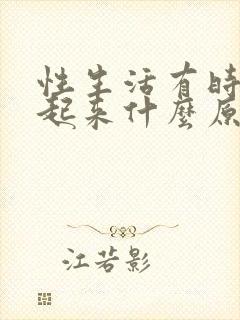 性生活有時
起来什麼原
江若影